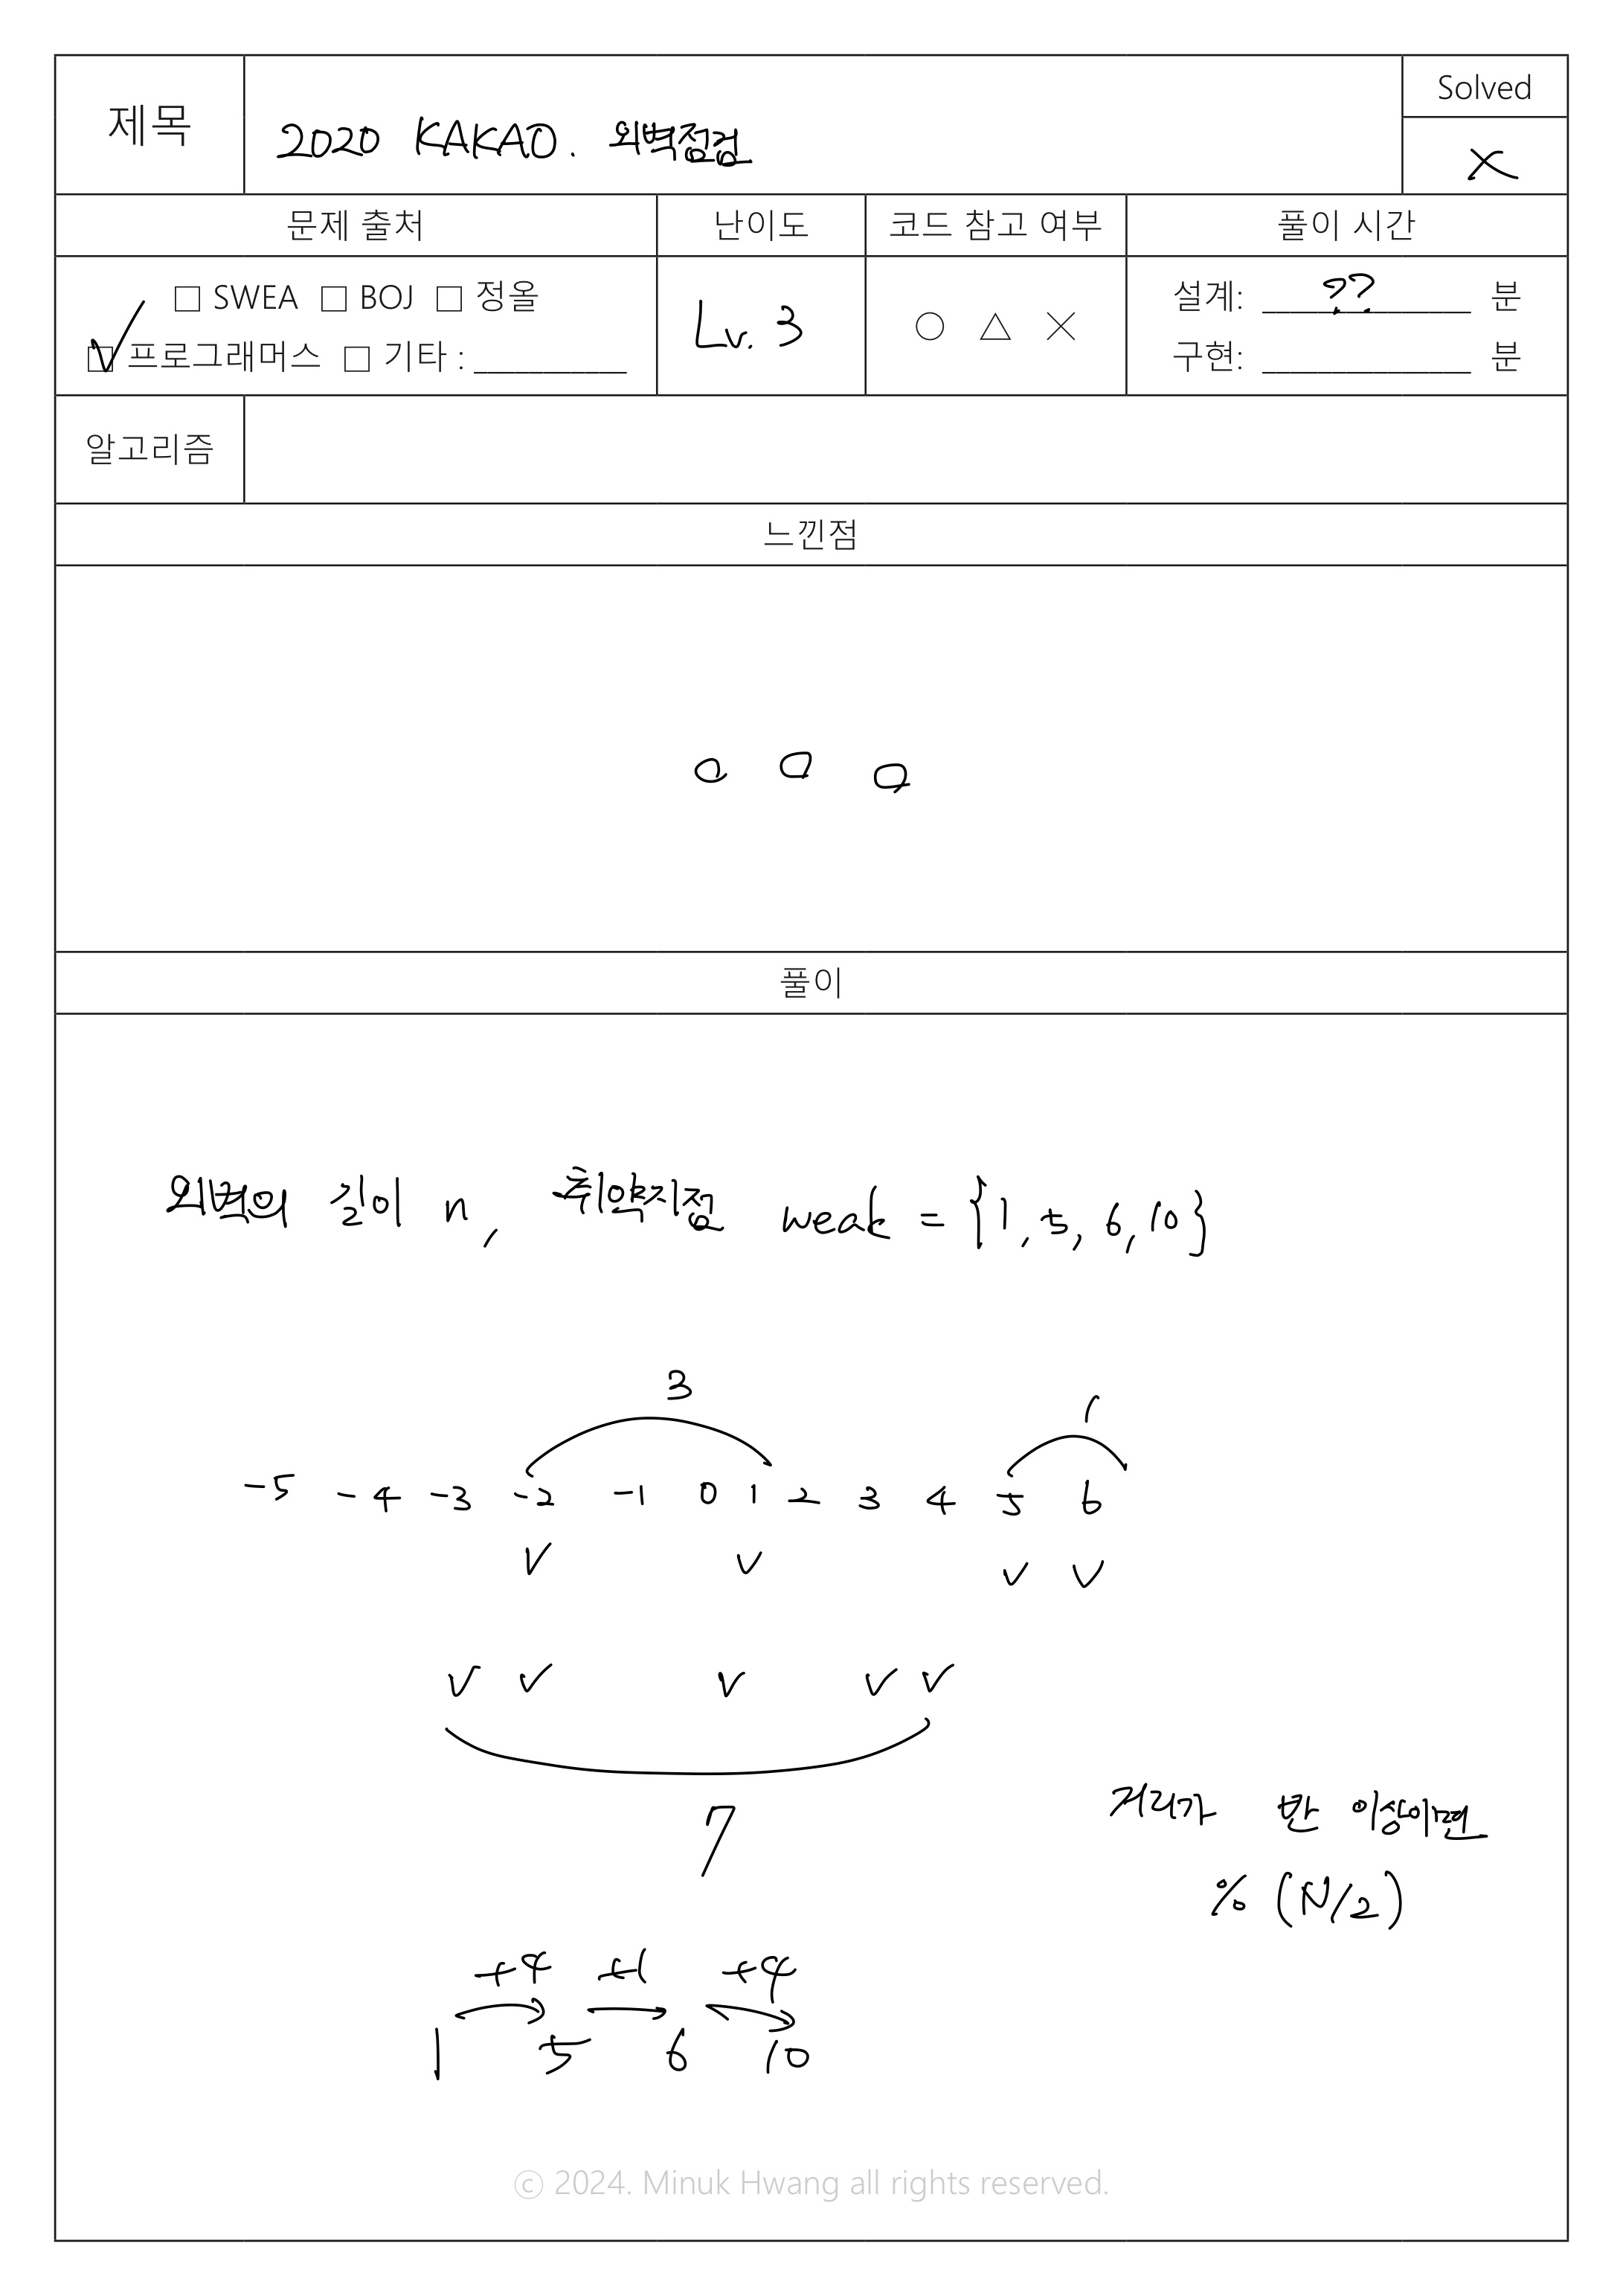 제목
2020 KAKAO. 외벽점검
Solved
X
문제 출처
난이도
코드 참고 여부
풀이 시간
□ SWEA □ BOJ □ 정올
☑ 프로그래머스 □ 기타 : __________
Lv. 3
○ △ ×
설계: ?? 분
구현: __________ 분
알고리즘
느낀점
o o o
풀이
외벽의 길이 n, 취약지점 weak = {1, 5, 6, 10}
3 1
-5 -4 -3 -2 -1 0 1 2 3 4 5 6
v v v v
v v v v v
7
거리가 반 이상이면
% (N/2)
+4 +1 +4
1 5 6 10
© 2024. Minuk Hwang all rights reserved.